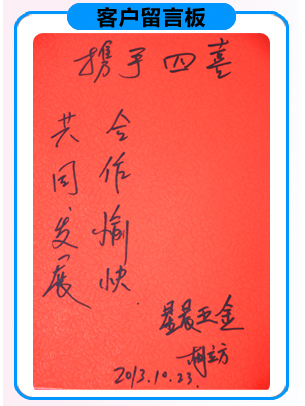 客户留言板
携手四喜
合作愉快
共同发展
五金
2013.10.23.